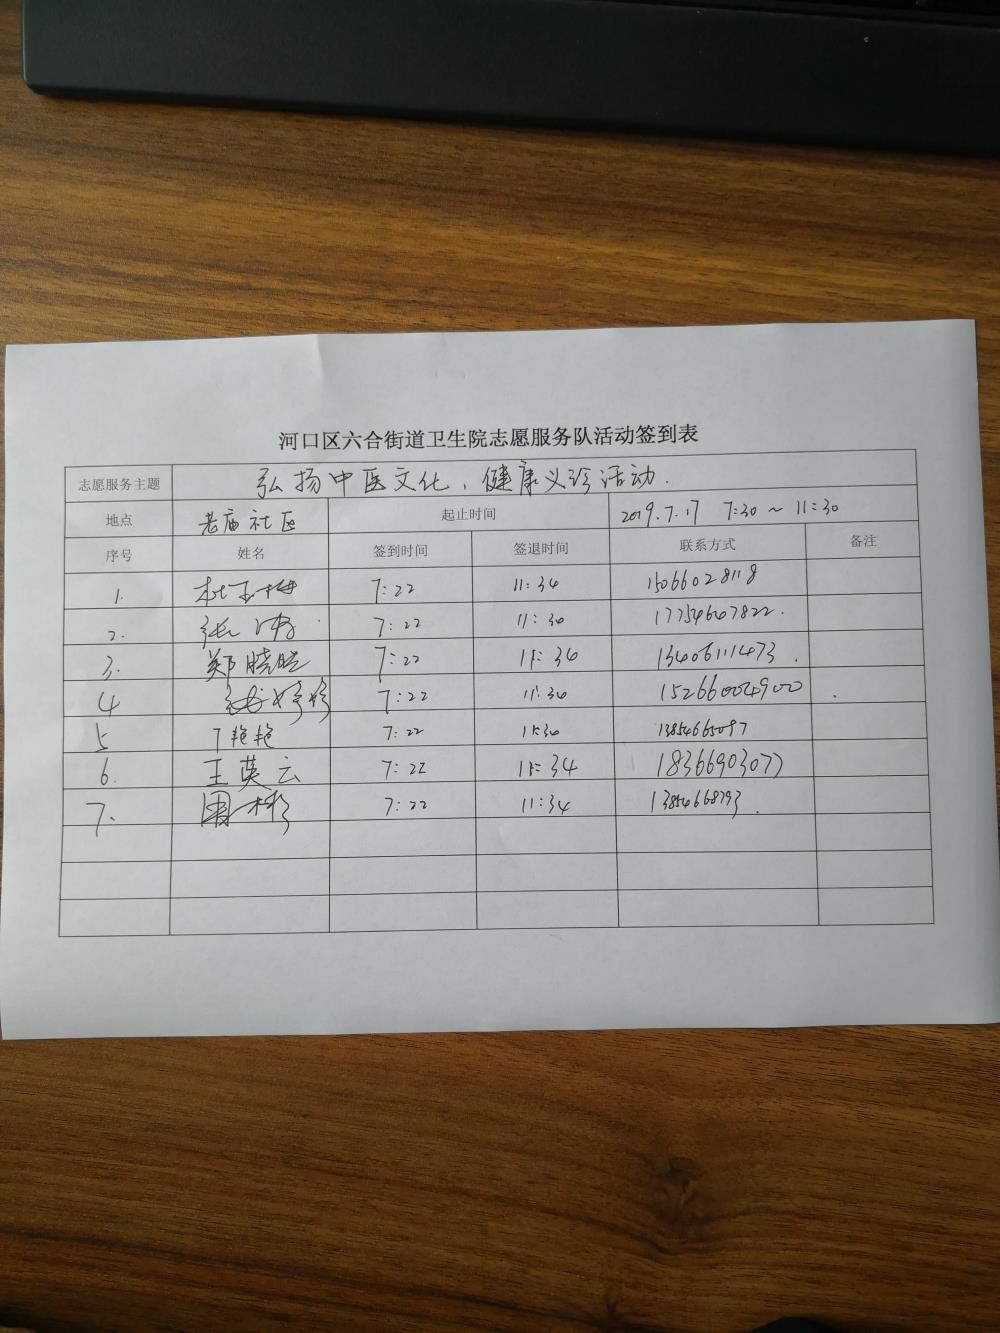 河口区六合街道卫生院志愿服务队活动签到表
志愿服务主题 弘扬中医文化、健康义诊活动.
地点 老庙社区 起止时间 2019.7.17 7:30～11:30
序号 姓名 签到时间 签退时间 联系方式 备注
1. 7:22 11:34 15066028118
2. 7:22 11:30 17754607822.
3. 郑晓 7:22 11:34 13406111473.
4 婷婷 7:22 11:30 15266004900
5 丁艳艳 7:22 11:30 13854665097
6. 王英云 7:22 11:34 18366903077
7. 周彬 7:22 11:34 13854668793.